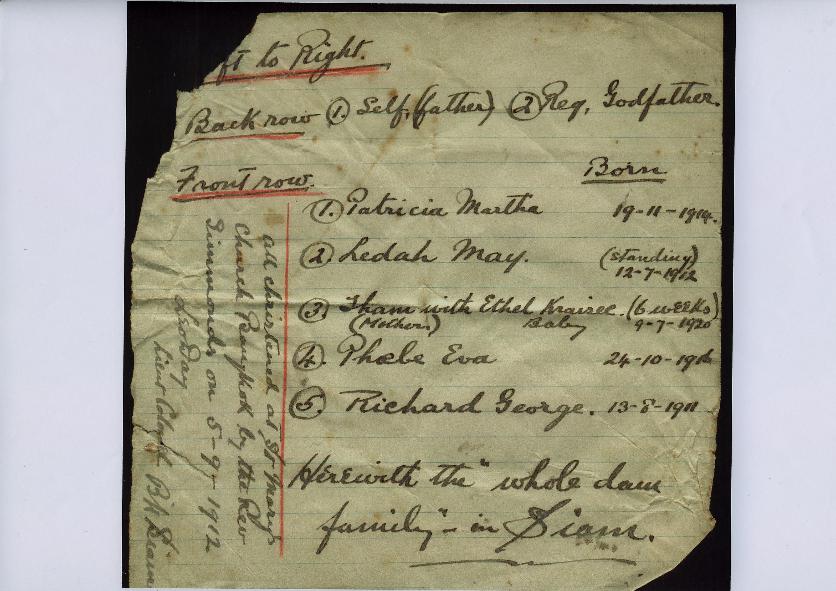 ft to Right.
Back row ① Self, (father) ② Reg, Godfather.
Front row. Born
①. Patricia Martha 19-11-1914.
② Ledah May. (standing)
12-7-1912
③. with Ethel (6 weeks)
(Mother) Baby 9-7-1920
④. Phœbe Eva 24-10-1916
⑤. Richard George. 13-8-1911
Herewith the "whole dam
family" - in Siam.
all christened at St Mary's
Church Bangkok by the Rev
Simmonds on 5-9-1912
Sunday